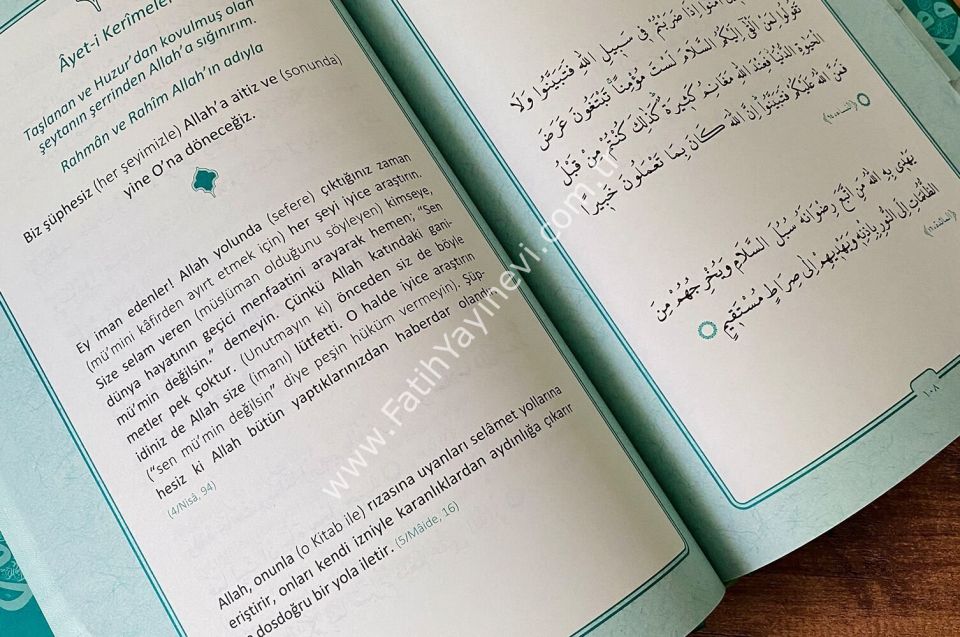 Âyet-i Kerîmeler
Taşlanan ve Huzur'dan kovulmuş olan
şeytanın şerrinden Allah'a sığınırım.
Rahmân ve Rahîm Allah'ın adıyla
Biz şüphesiz (her şeyimizle) Allah'a aitiz ve (sonunda)
yine O'na döneceğiz.
Ey iman edenler! Allah yolunda (sefere) çıktığınız zaman
(mü'mini kâfirden ayırt etmek için) her şeyi iyice araştırın.
Size selam veren (müslüman olduğunu söyleyen) kimseye,
dünya hayatının geçici menfaatini arayarak hemen; "Sen
mü'min değilsin." demeyin. Çünkü Allah katındaki gani-
metler pek çoktur. (Unutmayın ki) önceden siz de böyle
idiniz de Allah size (imanı) lütfetti. O halde iyice araştırın
("sen mü'min değilsin" diye peşin hüküm vermeyin). Şüp-
hesiz ki Allah bütün yaptıklarınızdan haberdar olandır.
(4/Nisâ, 94)
Allah, onunla (o Kitab ile) rızasına uyanları selâmet yollarına
eriştirir, onları kendi izniyle karanlıklardan aydınlığa çıkarır
dosdoğru bir yola iletir. (5/Mâide, 16)
اٰمَنُٓوا اِذَا ضَرَبْتُمْ فٖي سَبٖيلِ اللّٰهِ فَتَبَيَّنُوا وَلَا
تَقُولُوا لِمَنْ اَلْقٰٓى اِلَيْكُمُ السَّلَامَ لَسْتَ مُؤْمِنًاۚ تَبْتَغُونَ عَرَضَ
الْحَيٰوةِ الدُّنْيَاۘ فَعِنْدَ اللّٰهِ مَغَانِمُ كَثٖيرَةٌۜ كَذٰلِكَ كُنْتُمْ مِنْ قَبْلُ
فَمَنَّ اللّٰهُ عَلَيْكُمْ فَتَبَيَّنُواۜ اِنَّ اللّٰهَ كَانَ بِمَا تَعْمَلُونَ خَبٖيرًا
يَهْدٖي بِهِ اللّٰهُ مَنِ اتَّبَعَ رِضْوَانَهُ سُبُلَ السَّلَامِ وَيُخْرِجُهُمْ مِنَ
الظُّلُمَاتِ اِلَى النُّورِ بِاِذْنِهٖ وَيَهْدٖيهِمْ اِلٰى صِرَاطٍ مُسْتَقٖيمٍ
١٠٨
www.FatihYayinevi.com.tr